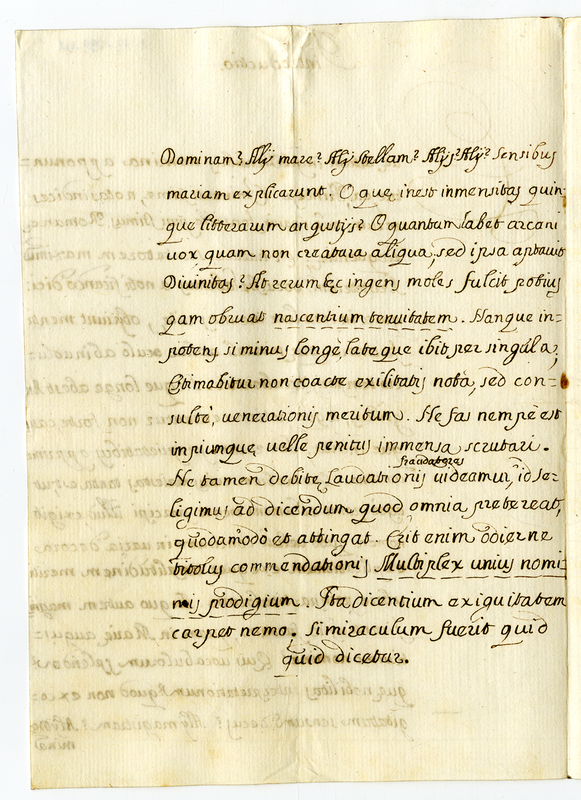 Dominam? Alij mare? Alij stellam? Alijs? Alij? sensibus
mariam explicarunt. O quę inest inmensitas quin
que litterarum angustijs? O quantum labet arcani
uox quam non creatura aliqua, sed ipsa aptauit
Diuinitas? At rerum hęc ingens moles fulcit potius
qam obruat nascentium tenuitatem. Nanque in-
potens si minus longè, late que ibit, per singula,
Estimabitur non coacte exilitatis nota, sed con-
sultè, uenerationis meritum. Nefas nempè est
inpiunque uelle penitus immensa scrutari.
fraudatores
Ne tamen debitę Laudationis uideamur, id se-
ligimus ad dicendum quod omnia pretereat,
quodamodò et attingat. Erit enim odierne
titolus commendationis Multiplex unius nomi
nis prodigium. Ita dicentium exiguitatem
carpet nemo. Si miraculum fuerit quid
quid dicetur.